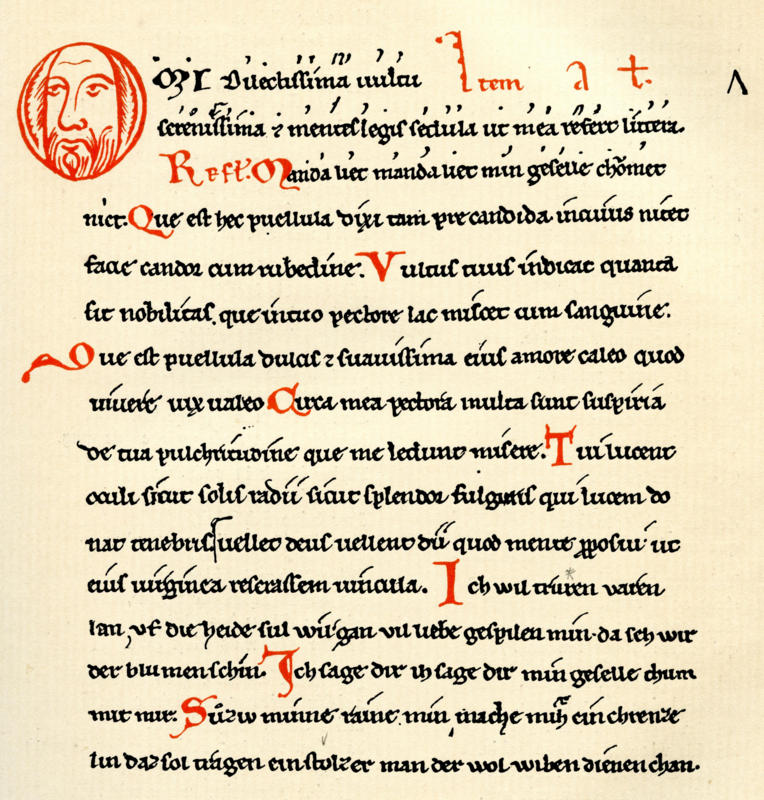 OMI dilectissima uultu Item A t.
serenissima ⁊ mentes legis sedula ut mea refert littera.
Refl. Manda liet manda liet min geselle chomet
nîet. Que est hec puellula dixi tam precandida in cuius nitet
facie candor cum rubedine. Vultus tuus indicat quanta
sit nobilitas. que in tuo pectore lac miscet cum sanguine.
Que est puellula dulcis ⁊ suauissima eius amore caleo quod
uiuere uix ualeo Circa mea pectora multa sunt suspiria
de tua pulchritudine que me ledunt misere. Tui lucent
oculi sicut solis radii sicut splendor fulguris qui lucem do
nat tenebris uellet deus uellent dii quod mente pposui ut
eius uirginea reserassem uincula. Ich wil truren varen
lan, vf die heide sul wir gan vil liebe gespilen min. da seh wir
der blumen schin. Ich sage dir ih sage dir min geselle chum
mit mir. Suͦziv minne raine min mache mih ein chrenze
lin daz sol tragen ein stolzer man der wol wiben dienen chan.